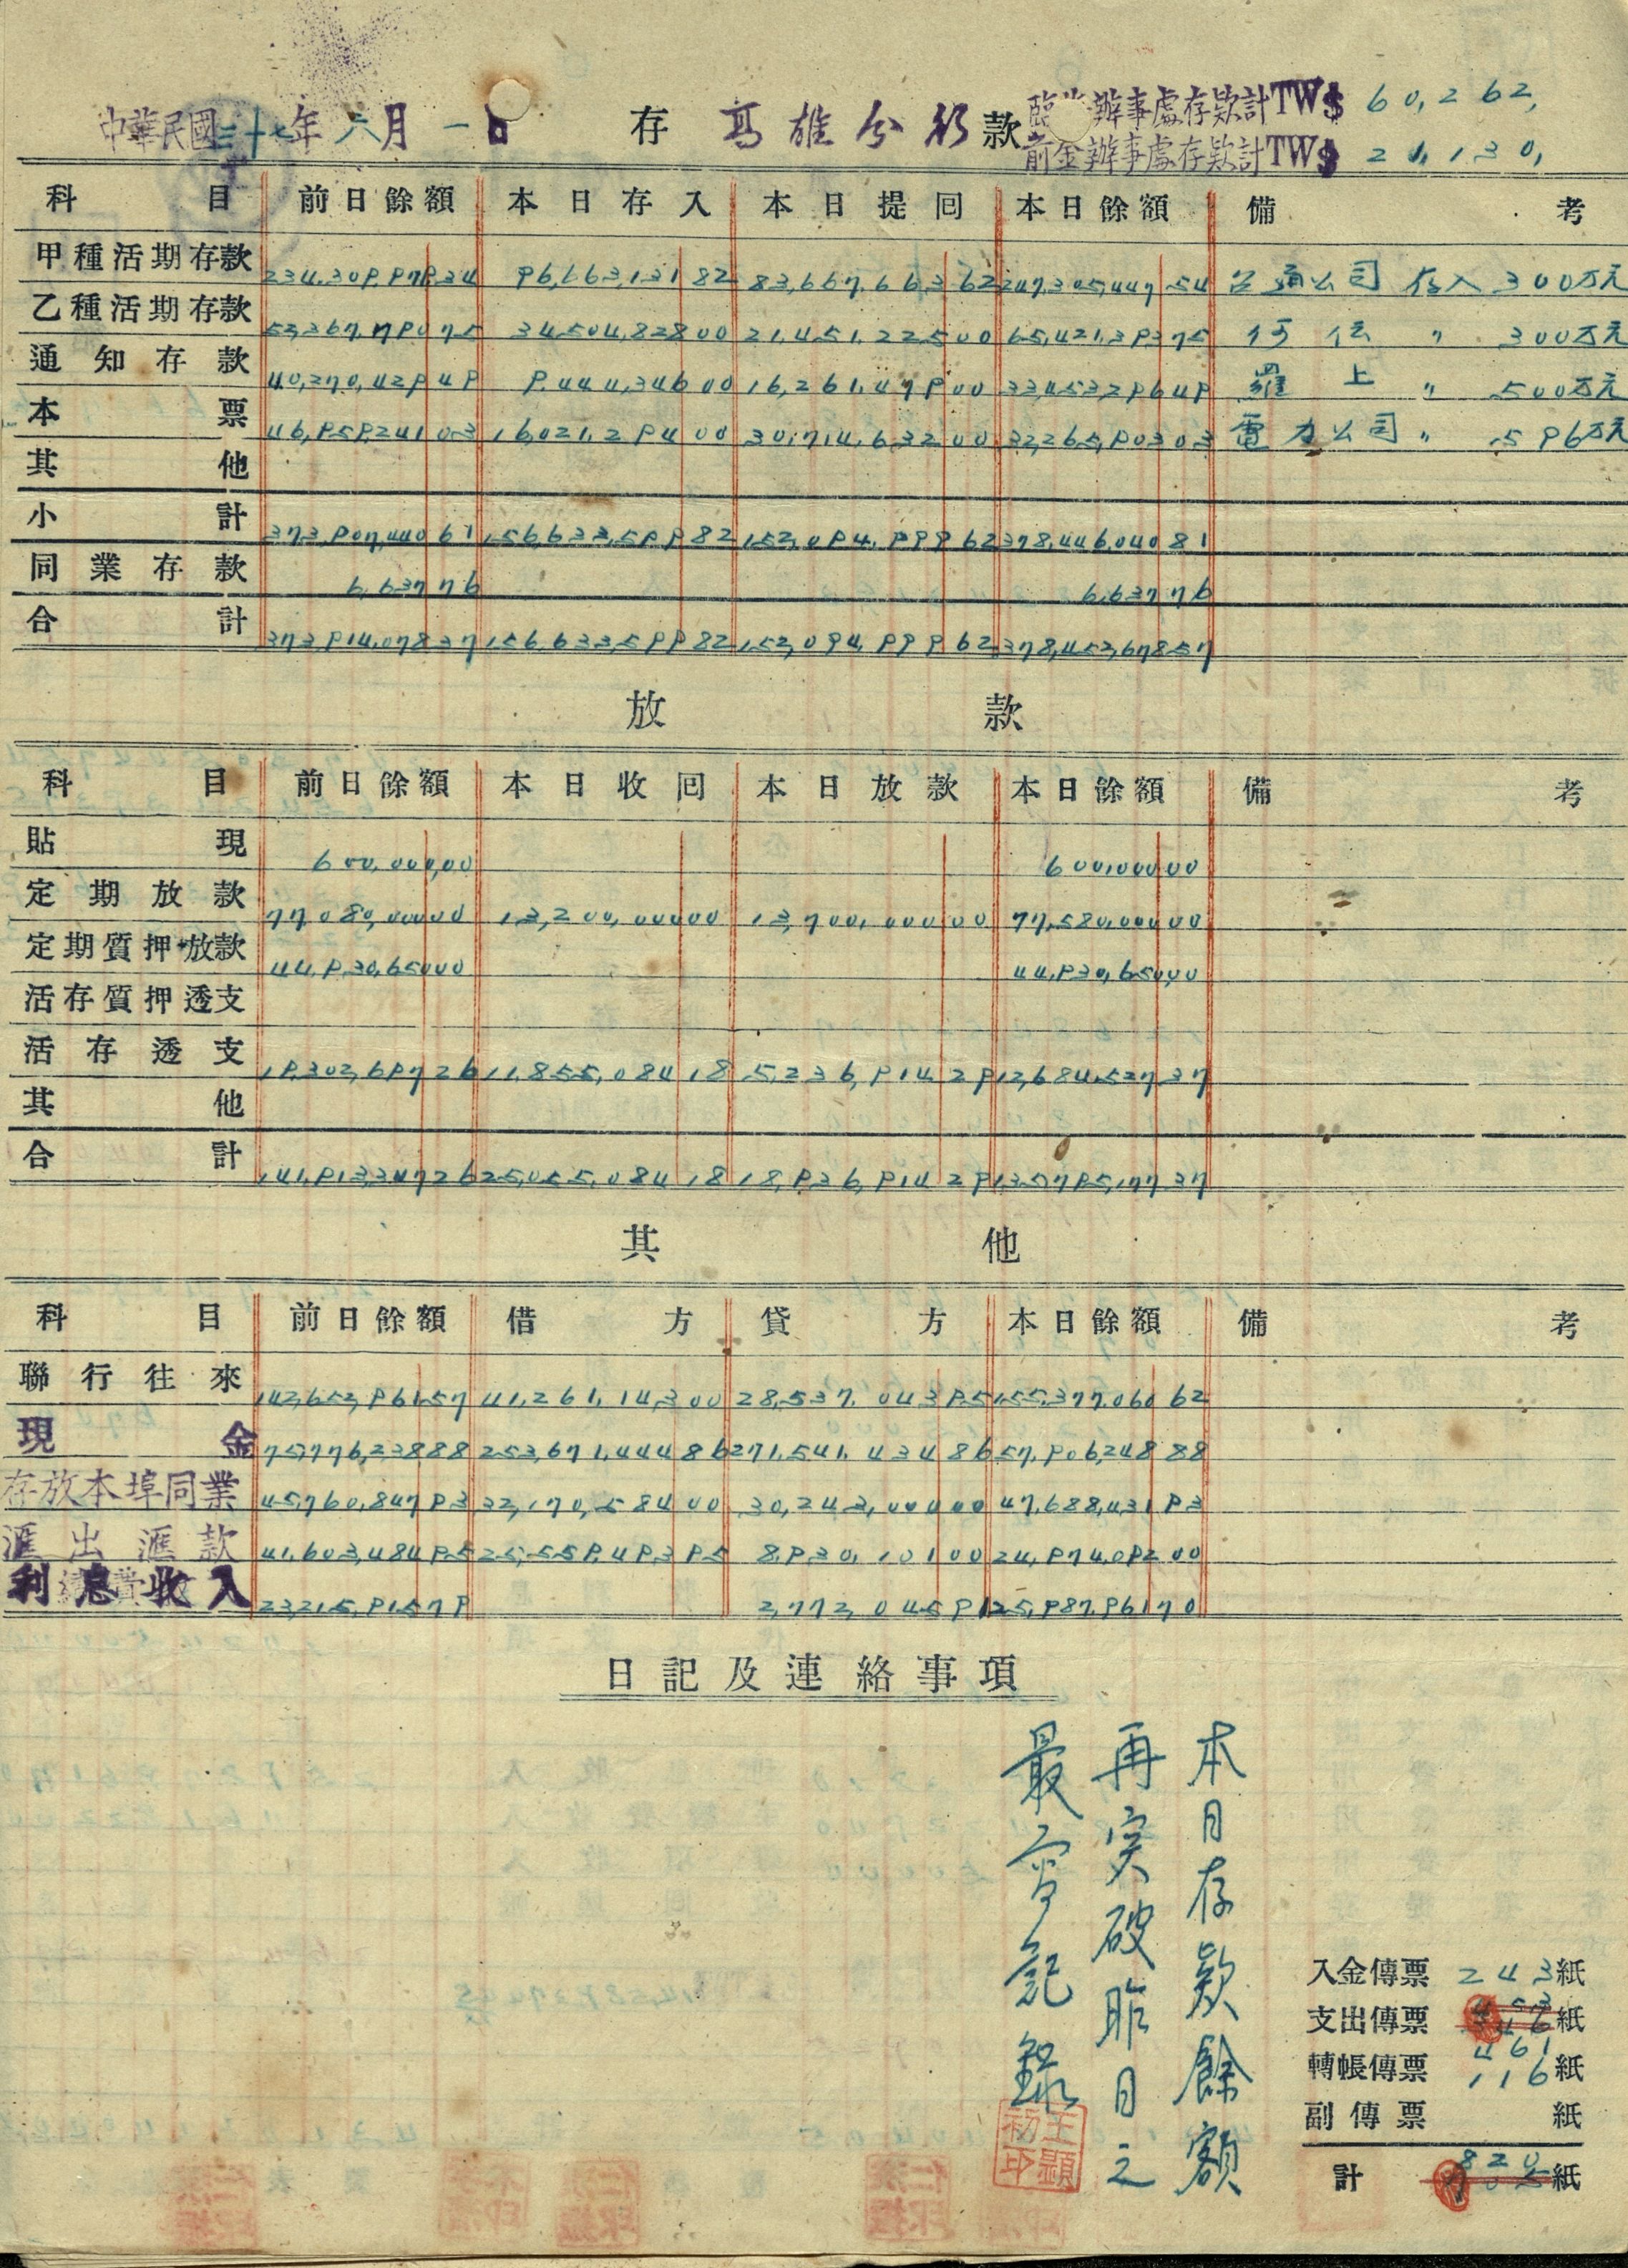 中華民國三十七年六月一日 存 高雄分行 款 辦事處存款計TW$ 60,262,
前金辦事處存款計TW$ 21,130,
科目 前日餘額 本日存入 本日提回 本日餘額 備考
甲種活期存款 234,309,979.34 96,663,131.82 83,667,663.62 247,305,447.54 公司 存入 300万元
乙種活期存款 52,367,790.75 34,504,828.00 21,451,225.00 65,421,393.75 何 〃 300万元
通知存款 40,270,429.49 9,444,346.00 16,261,479.00 33,453,296.49 羅 上 〃 500万元
本票 46,959,241.03 16,021,294.00 30,714,632.00 32,265,903.03 電力公司 〃 596万元
其他
小計 373,907,440.61 156,633,599.82 152,094,999.62 378,446,040.81
同業存款 6,637.76 6,637.76
合計 373,914,078.37 156,633,599.82 152,094,999.62 378,452,678.57
放款
科目 前日餘額 本日收回 本日放款 本日餘額 備考
貼現 600,000.00 600,000.00
定期放款 77,080,000.00 13,200,000.00 13,700,000.00 77,580,000.00
定期質押放款 44,930,650.00 44,930,650.00
活存質押透支
活存透支 19,302,697.26 11,855,084.18 5,236,914.29 12,684,527.37
其他
合計 141,913,347.26 25,055,084.18 18,936,914.29 135,795,177.37
其他
科目 前日餘額 借方 貸方 本日餘額 備考
聯行往來 142,652,961.57 41,261,143.00 28,537,043.95 155,377,060.62
現金 75,776,238.88 253,671,444.86 271,541,434.86 57,906,248.88
存放本埠同業 45,760,847.93 32,170,584.00 30,243,000.00 47,688,431.93
滙出滙款 41,603,484.95 25,559,493.95 8,930,101.00 24,974,092.00
利息收入 23,215,915.79 2,772,045.91 25,987,961.70
日記及連絡事項
本日存款餘額
再突破昨日之
最高記錄
王顯初印
入金傳票 243紙
支出傳票 461紙
轉帳傳票 116紙
副傳票 紙
計 820紙